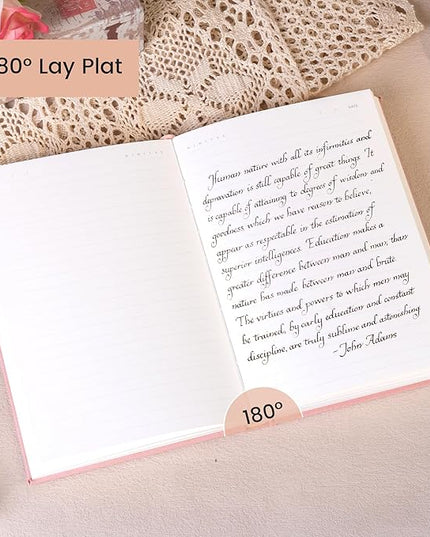 80° Lay Plat
Human nature with all its infirmities and
depravation is still capable of great things. It
is capable of attaining to degrees of wisdom and
goodness which we have reason to believe,
appear as respectable in the estimation of
superior intelligences. Education makes a
greater difference between man and man, than
nature has made between man and brute.
The virtues and powers to which men may
be trained, by early education and constant
discipline, are truly sublime and astonishing
-John Adams
180°